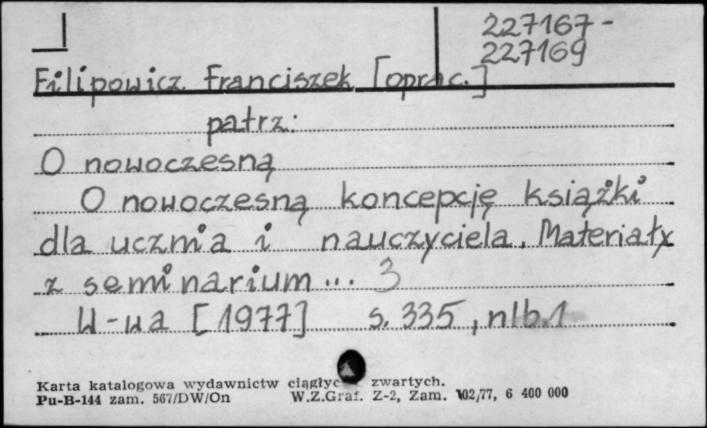 227167-
227169
Filipowicz Franciszek [oprac.]
patrz:
O nowoczesną
O nowoczesną koncepcję książki
dla ucznia i nauczyciela. Materiały
z seminarium... 3
W-wa [1977] s. 335, nlb.1
Karta katalogowa wydawnictw ciągłyc zwartych.
Pu-B-144 zam. 567/DW/On W.Z.Graf. Z-2, Zam. 102/77, 6 400 000